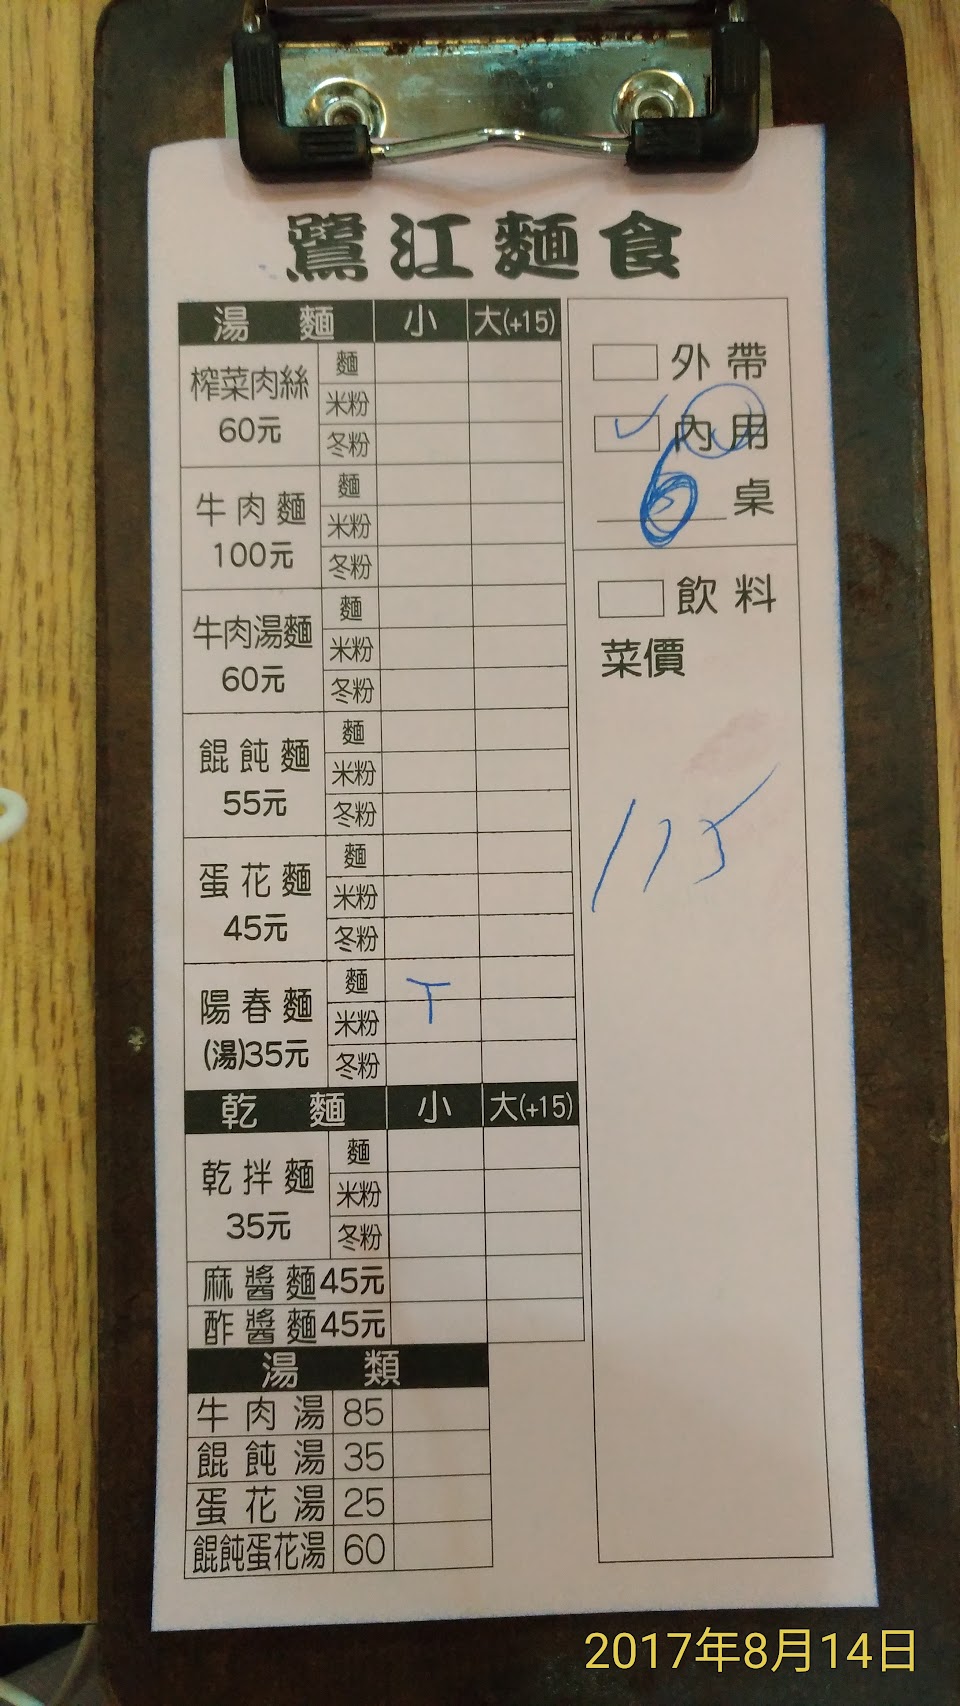 鷺江麵食
湯麵 小 大(+15)
榨菜肉絲 60元 麵
米粉
冬粉
牛肉麵 100元 麵
米粉
冬粉
牛肉湯麵 60元 麵
米粉
冬粉
餛飩麵 55元 麵
米粉
冬粉
蛋花麵 45元 麵
米粉
冬粉
陽春麵 (湯)35元 麵 T
米粉
冬粉
乾麵 小 大(+15)
乾拌麵 35元 麵
米粉
冬粉
麻醬麵45元
酢醬麵45元
湯類
牛肉湯 85
餛飩湯 35
蛋花湯 25
餛飩蛋花湯 60
外帶
✓ 內用
6 桌
飲料
菜價
115
2017年8月14日